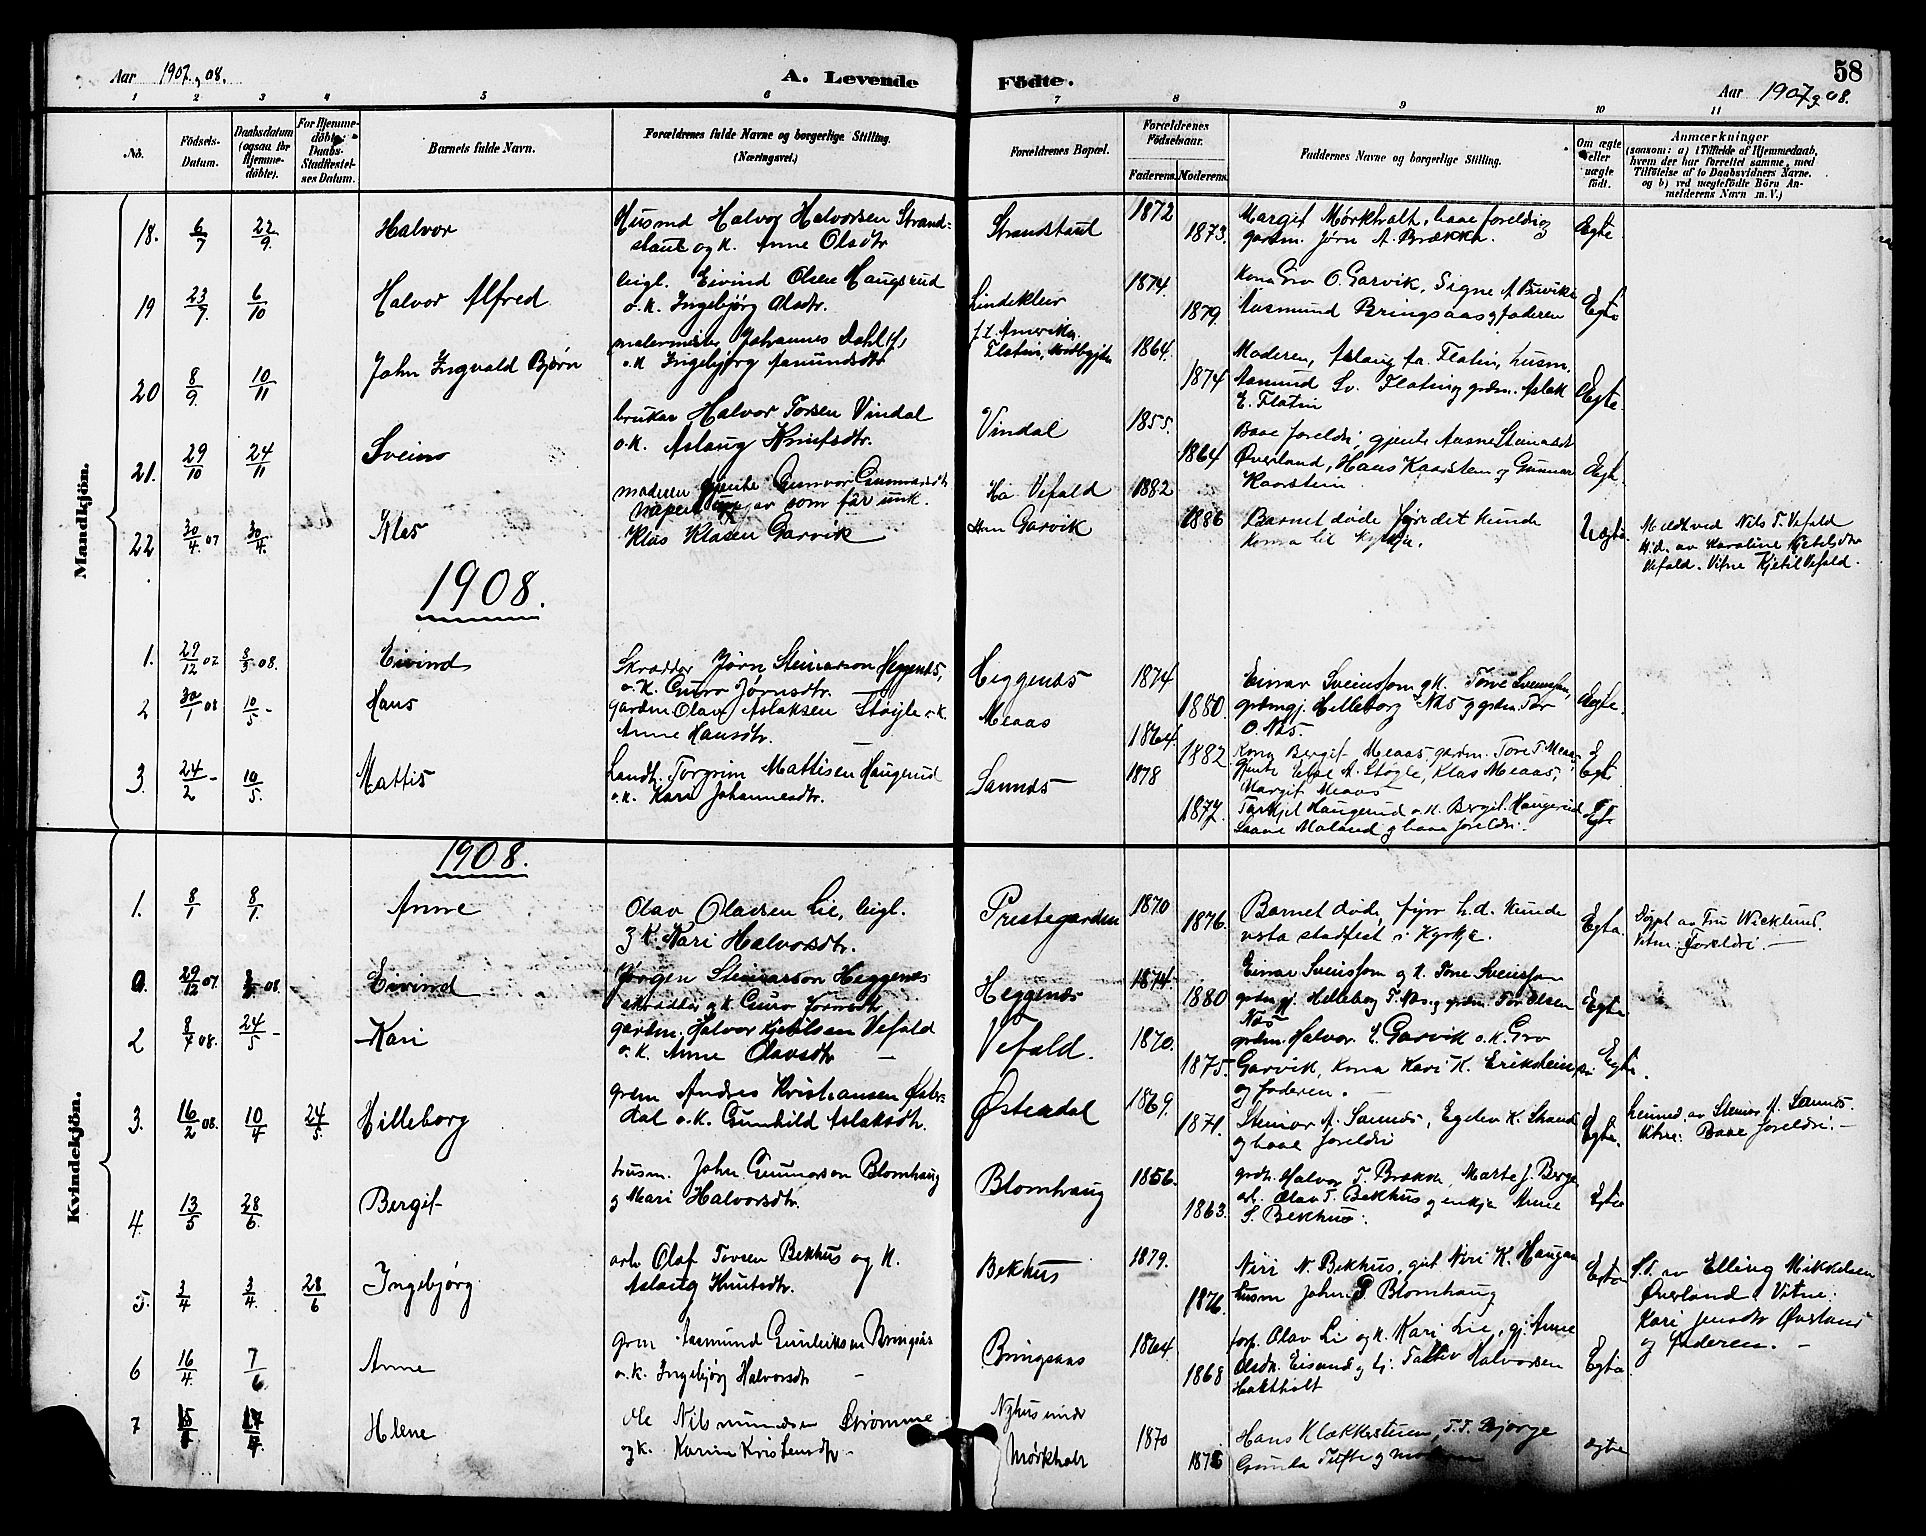 Aar 1907 g 08.
A. Levende
Födte.
58
Aar 1907 g 08.
1 2 3 4 5 6 7 8 9 10 11
No.
Födsels-Datum.
Daabsdatum (ogsaa for Hjemme-döbte).
For Hjemme-döbte: Daabs-Stadfæstel-ses Datum.
Barnets fulde Navn.
Forældrenes fulde Navne og borgerlige Stilling. (Næringsvei.)
Forældrenes Bopæl.
Forældrenes Födselsaar.
Faderens. Moderens.
Faddernes Navne og borgerlige Stilling.
Om ægte eller uægte födt.
Anmærkninger (saasom: a) i Tilfælde af Hjemmedaab, hvem der har forrettet samme, med Tilföielse af to Daabsvidners Navne. og b) ved uægtefödte Börn Anmelderens Navn m. V.)
Mandkjön.
18. 6/7 22/9 Halvor
Husmd Halvor Halvorsen Strand-
staut og K. Anne Olsdtr
Strandstaut 1872 1873.
Margit Mørkholt, baae foreldri og
gardm. Jørn A. Brække.
Ægte.
19 23/7 6/10 Halvor Alfred
leigl. Eivind Olsen Haugsrud
o.K. Ingebjörg Olsdtr.
Lindekleiv 1874. 1879.
Kona Gro O. Garvik, Signe A. Buvike
Aasmund Bringsaas g faderen
Egte
20 8/9 10/11 John Ingvald Bjørn
malermester Johannes Dahl
o.K Ingebjörg Aamundsdtr
f.t. Amerika.
Flatin, 1864. 1874
Moderen, Aslaug Aa. Flatin, husm.
Aamund Sv. Flatin g grdm. Aslak
E. Flatin
Ægte.
21. 29/10 24/11 Sveino
brukar Halvor Torsen Vindal
o.K. Aslaug Knutsdtr.
Vindal 1855. 1864
Baae foreldri, gjente Aasne Steinarsdt
Øverland, Hans Kaarstein og Gunnar
Kaarstein.
22 30/4 07 30/4. Klas
moderen gjente Gunvor Gunnarsdt
som før unk.
Klas Klasen Garvik
Ha Vefald
Han Garvik
1882 1886
Barnet døde fyrr det kunde
koma til kyrkje.
Uægte
Meldt ved Nils T. Vefald
H.d. av Karoline Kjetilsdtr
Vefald. Vitne Kjetil Vefald.
1908.
1. 29/12 07 8/3 08. Eivind
Skrædder Jørn Steinarson Heggenes,
o.K. Guro Jørnsdtr.
Heggenæs 1874 1880.
Einar Sveinsson g K. Tone Sveinsson,
grdmgj. Helleborg Næs g grdm. Tor
O. Næs.
Ægte.
2 30/1 08 10/5 - Hans
Gardm Olav Aslaksen Støyle o.K.
Anne Hansdtr.
Meaas 1864. 1882
Kona Bergit Meaas, gardm. Tore T Meaas,
Gjente Else A. Støyle, Klas Meaas,
Margit Meaas
Egt.
3. 24/2 - 10/5. Mattis
Landh. Torgrim Mattisen Haugerud
o.K. Kari Johannesdtr.
Sannæs 1878 1872.
Tarkjel Haugerud o.K. Bergit Haugerud
Saave Moland g baae foreldri.
Egte
Kvindekjön.
1908.
1. 8/1 8/1. Anne
Olav Oladsen Lie, leigl.
g K. Kari Halvorsdtr.
Prestegarden 1870 1876.
Barnet døde fyrr h.d. kunde
verta stadfest i Kyrkje.
Egta.
Døypt av Fru Wicklund.
Vitne: Foreldri. —
0. 29/12 07. 8/3 08. Eivind
Jørgen Steinarson Heggenes
skredder g K Guro Jørnsdtr
Heggenæs 1874 1880
Einar Sveinsson og K. Tone Sveinsson
grdm gj. Helleborg T. Næs. g grdm. Tor Olsen
Næs
Egte
2 8/7 08. 24/5 - Kari
gardm. Halvor Kjetilsen Vefald
o.K. Anne Olavsdtr —
Vefald. 1870. 1875.
grdm. Halvor E. Garvik o.K. Gro
Garvik, Kona Kari K. Eriksteinsp
og faderen. -
Egte.
3. 16/2 08. 10/4 24/5. Hilleborg
grdm Andres Kristiansen Øster-
dal o.K. Gunhild Aslaksdtr.
Østerdal 1869. 1871.
Steinar A. Sannes, Egelev K. Strand
g baae foreldri
Egte.
heimed. av Steinar A. Sannes.
Vitne: Baae foreldri. -
4. 13/5 28/6. Bergit
husm. John Gunnarson Blomhaug
g Mari Halvorsdtr.
Blomhaug 1856. 1863.
grdr. Halvor T. Brække, Marte J. Berge
arb. Olav T. Bekhus g enkja Anne
S. Bekhus.
Egte
5. 3/4 3/4. 28/6 Ingebjørg
arb Olaf Torsen Bekhus og K.
Aslaug Knutsdtr.
Bekhus 1879. 1876.
Niri N. Bekhus, gut Niri K. Haugan
husm John G Blomhaug
Egta
H.d. av Elling Mikkelsen
Øverland. Vitne:
Kari Jensdtr Øverland
og faderen. -
6 16/4. 7/6 Anne
grm Aasmund Gunleiksen Bringsås
o.K. Ingebjörg Halvorsdtr -
Bringsaas 1864. 1868
forp. Olav Li og K. Kari Lie, gj. Anne
Olsdtr. Eisand g Halvorsen
Haktholt
Egta
7 15/ 17/ Helene
Ole Nilsmundsen Strømme
og K. Karine Kristensdtr -
Nyhus under
Mørkholt
1870 187
Hans Klakkestuen, T. T. Bjørge
Gunla Tufte g moderen
ægte